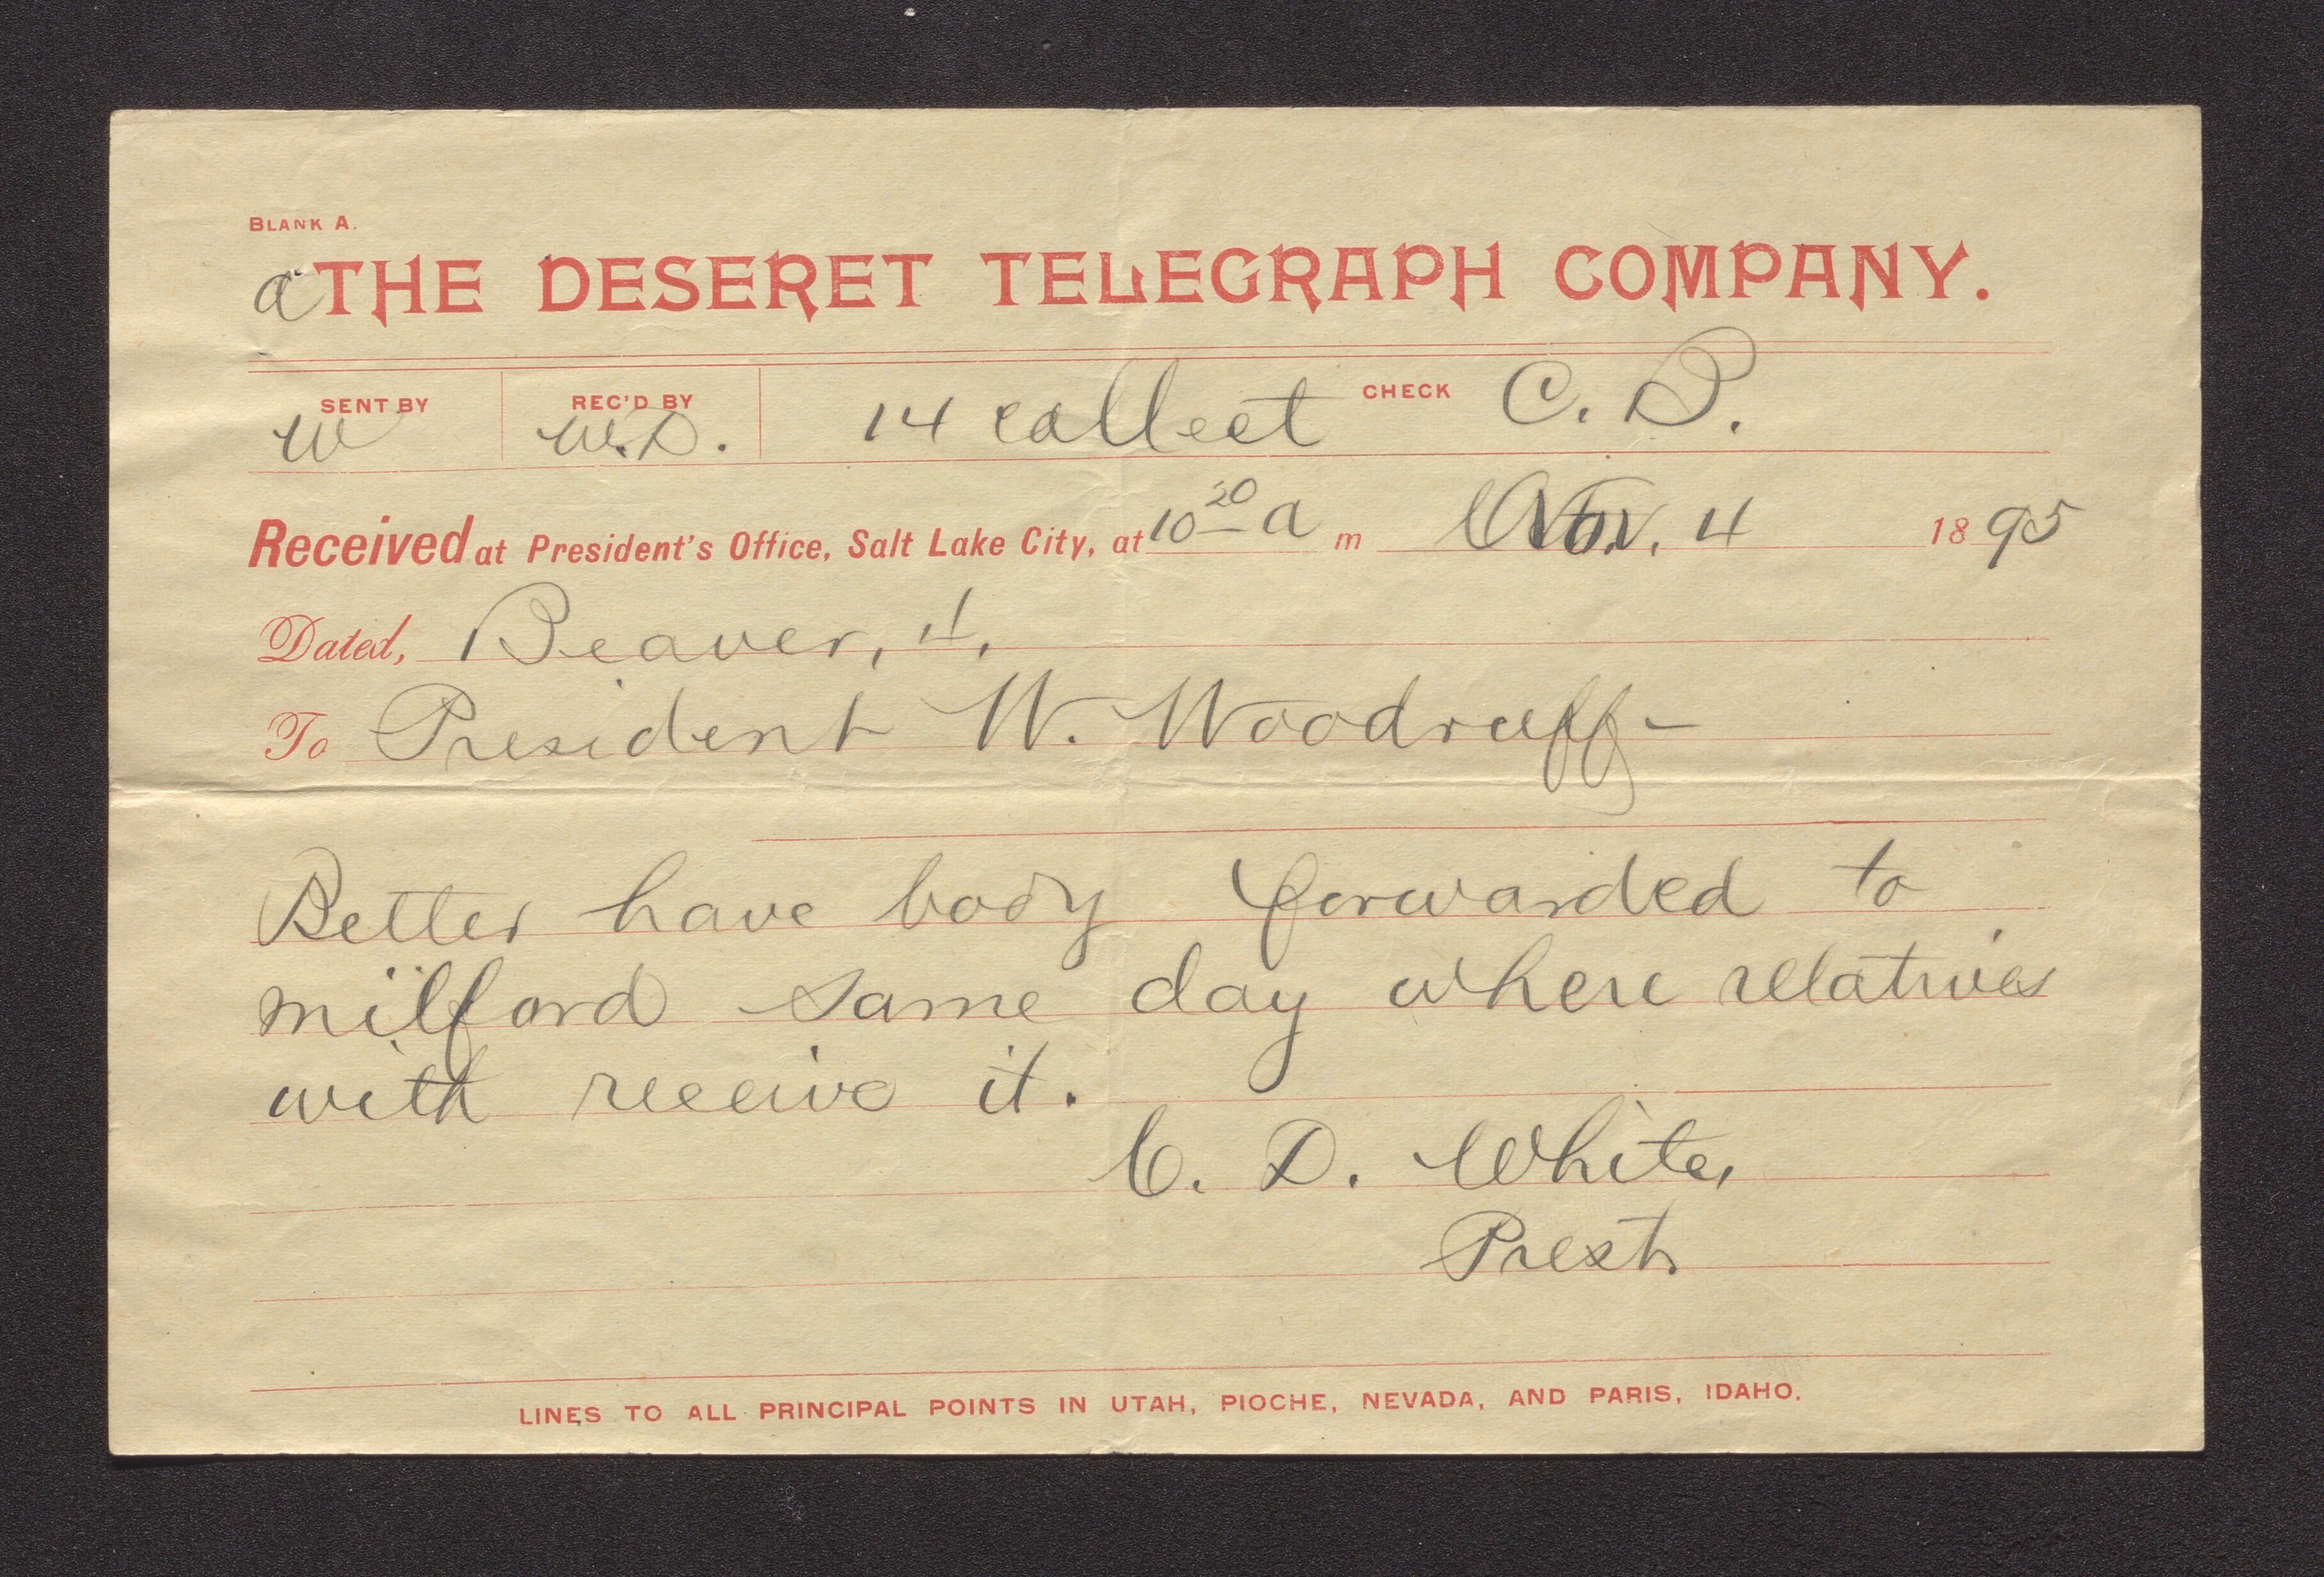 BLANK A.
a THE DESERET TELEGRAPH COMPANY.
SENT BY REC'D BY CHECK
W W.D. 14 collect C. B.
Received at President's Office, Salt Lake City, at 10 20 a m Nov. 4 1895
Dated, Beaver, 4.
To President W. Woodruff-
Better have body forwarded to
milford same day where relatives
with receive it.
C. D. White,
Prest.
LINES TO ALL PRINCIPAL POINTS IN UTAH, PIOCHE, NEVADA, AND PARIS, IDAHO.